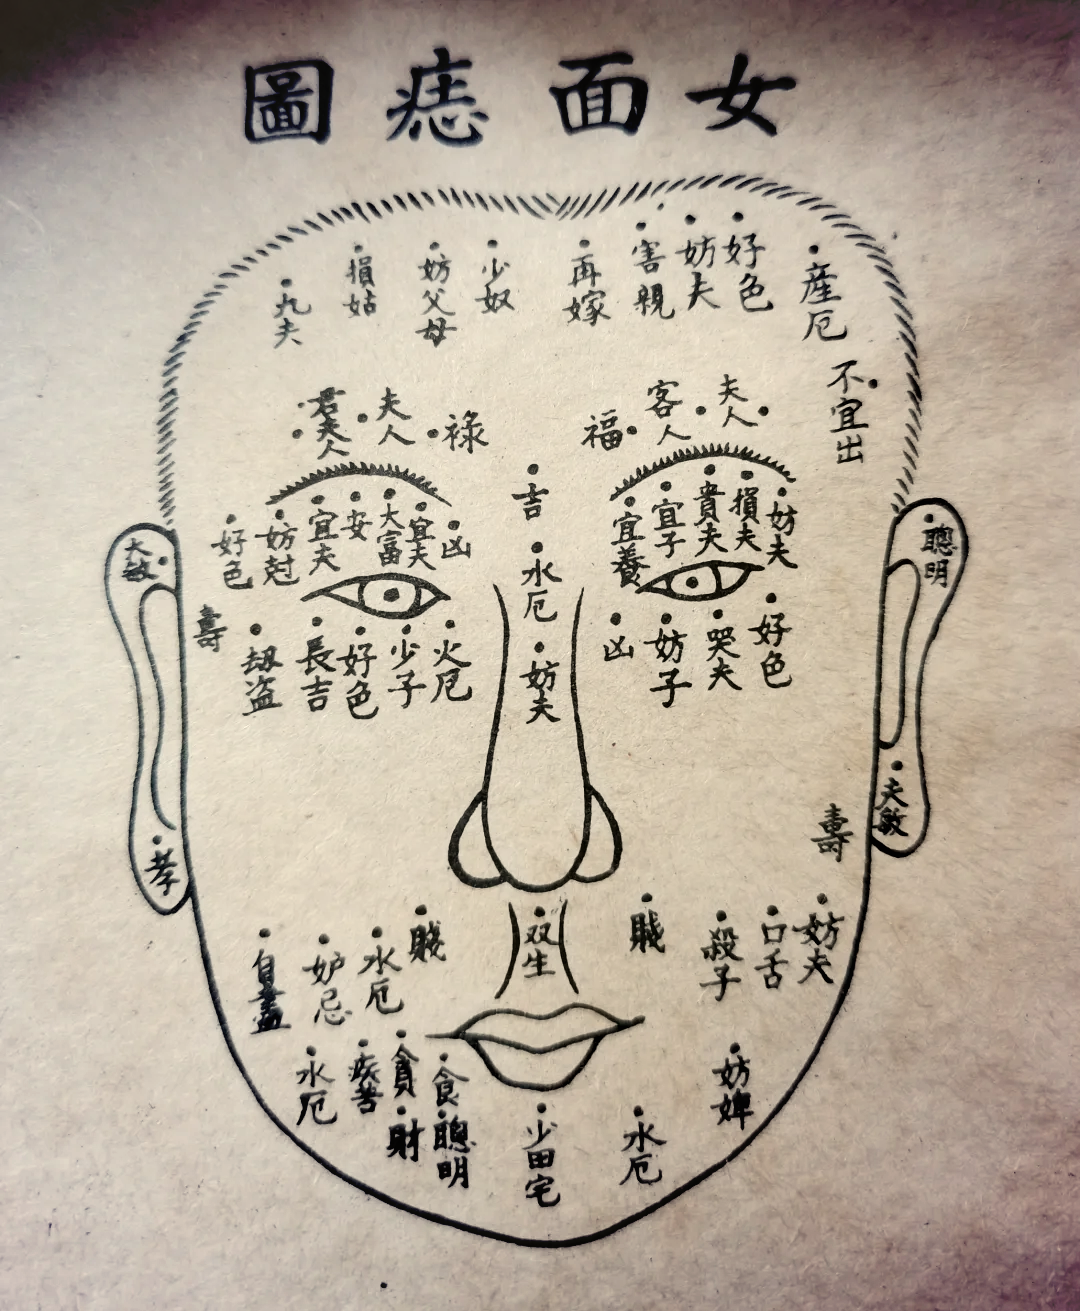 女面痣圖
產厄
好色
妨夫
害親
再嫁
少奴
妨父母
損姑
九夫
不宜出
夫人
客人
福
祿
夫人
君夫人
吉
水厄
妨夫
妨夫
損夫
貴夫
宜子
宜養
凶
宜夫
大富
安
宜夫
妨尅
好色
聰明
大敏
好色
哭夫
妨子
凶
火厄
少子
好色
長吉
劫盜
壽
夫敏
壽
孝
妨夫
口舌
殺子
賤
双生
賤
水厄
妒忌
自盡
妨婢
水厄
少田宅
食
聰明
貪
財
水厄